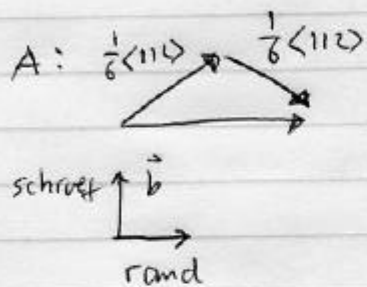 A: 1/6<112> 1/6<112>
schroef b⃗
rand